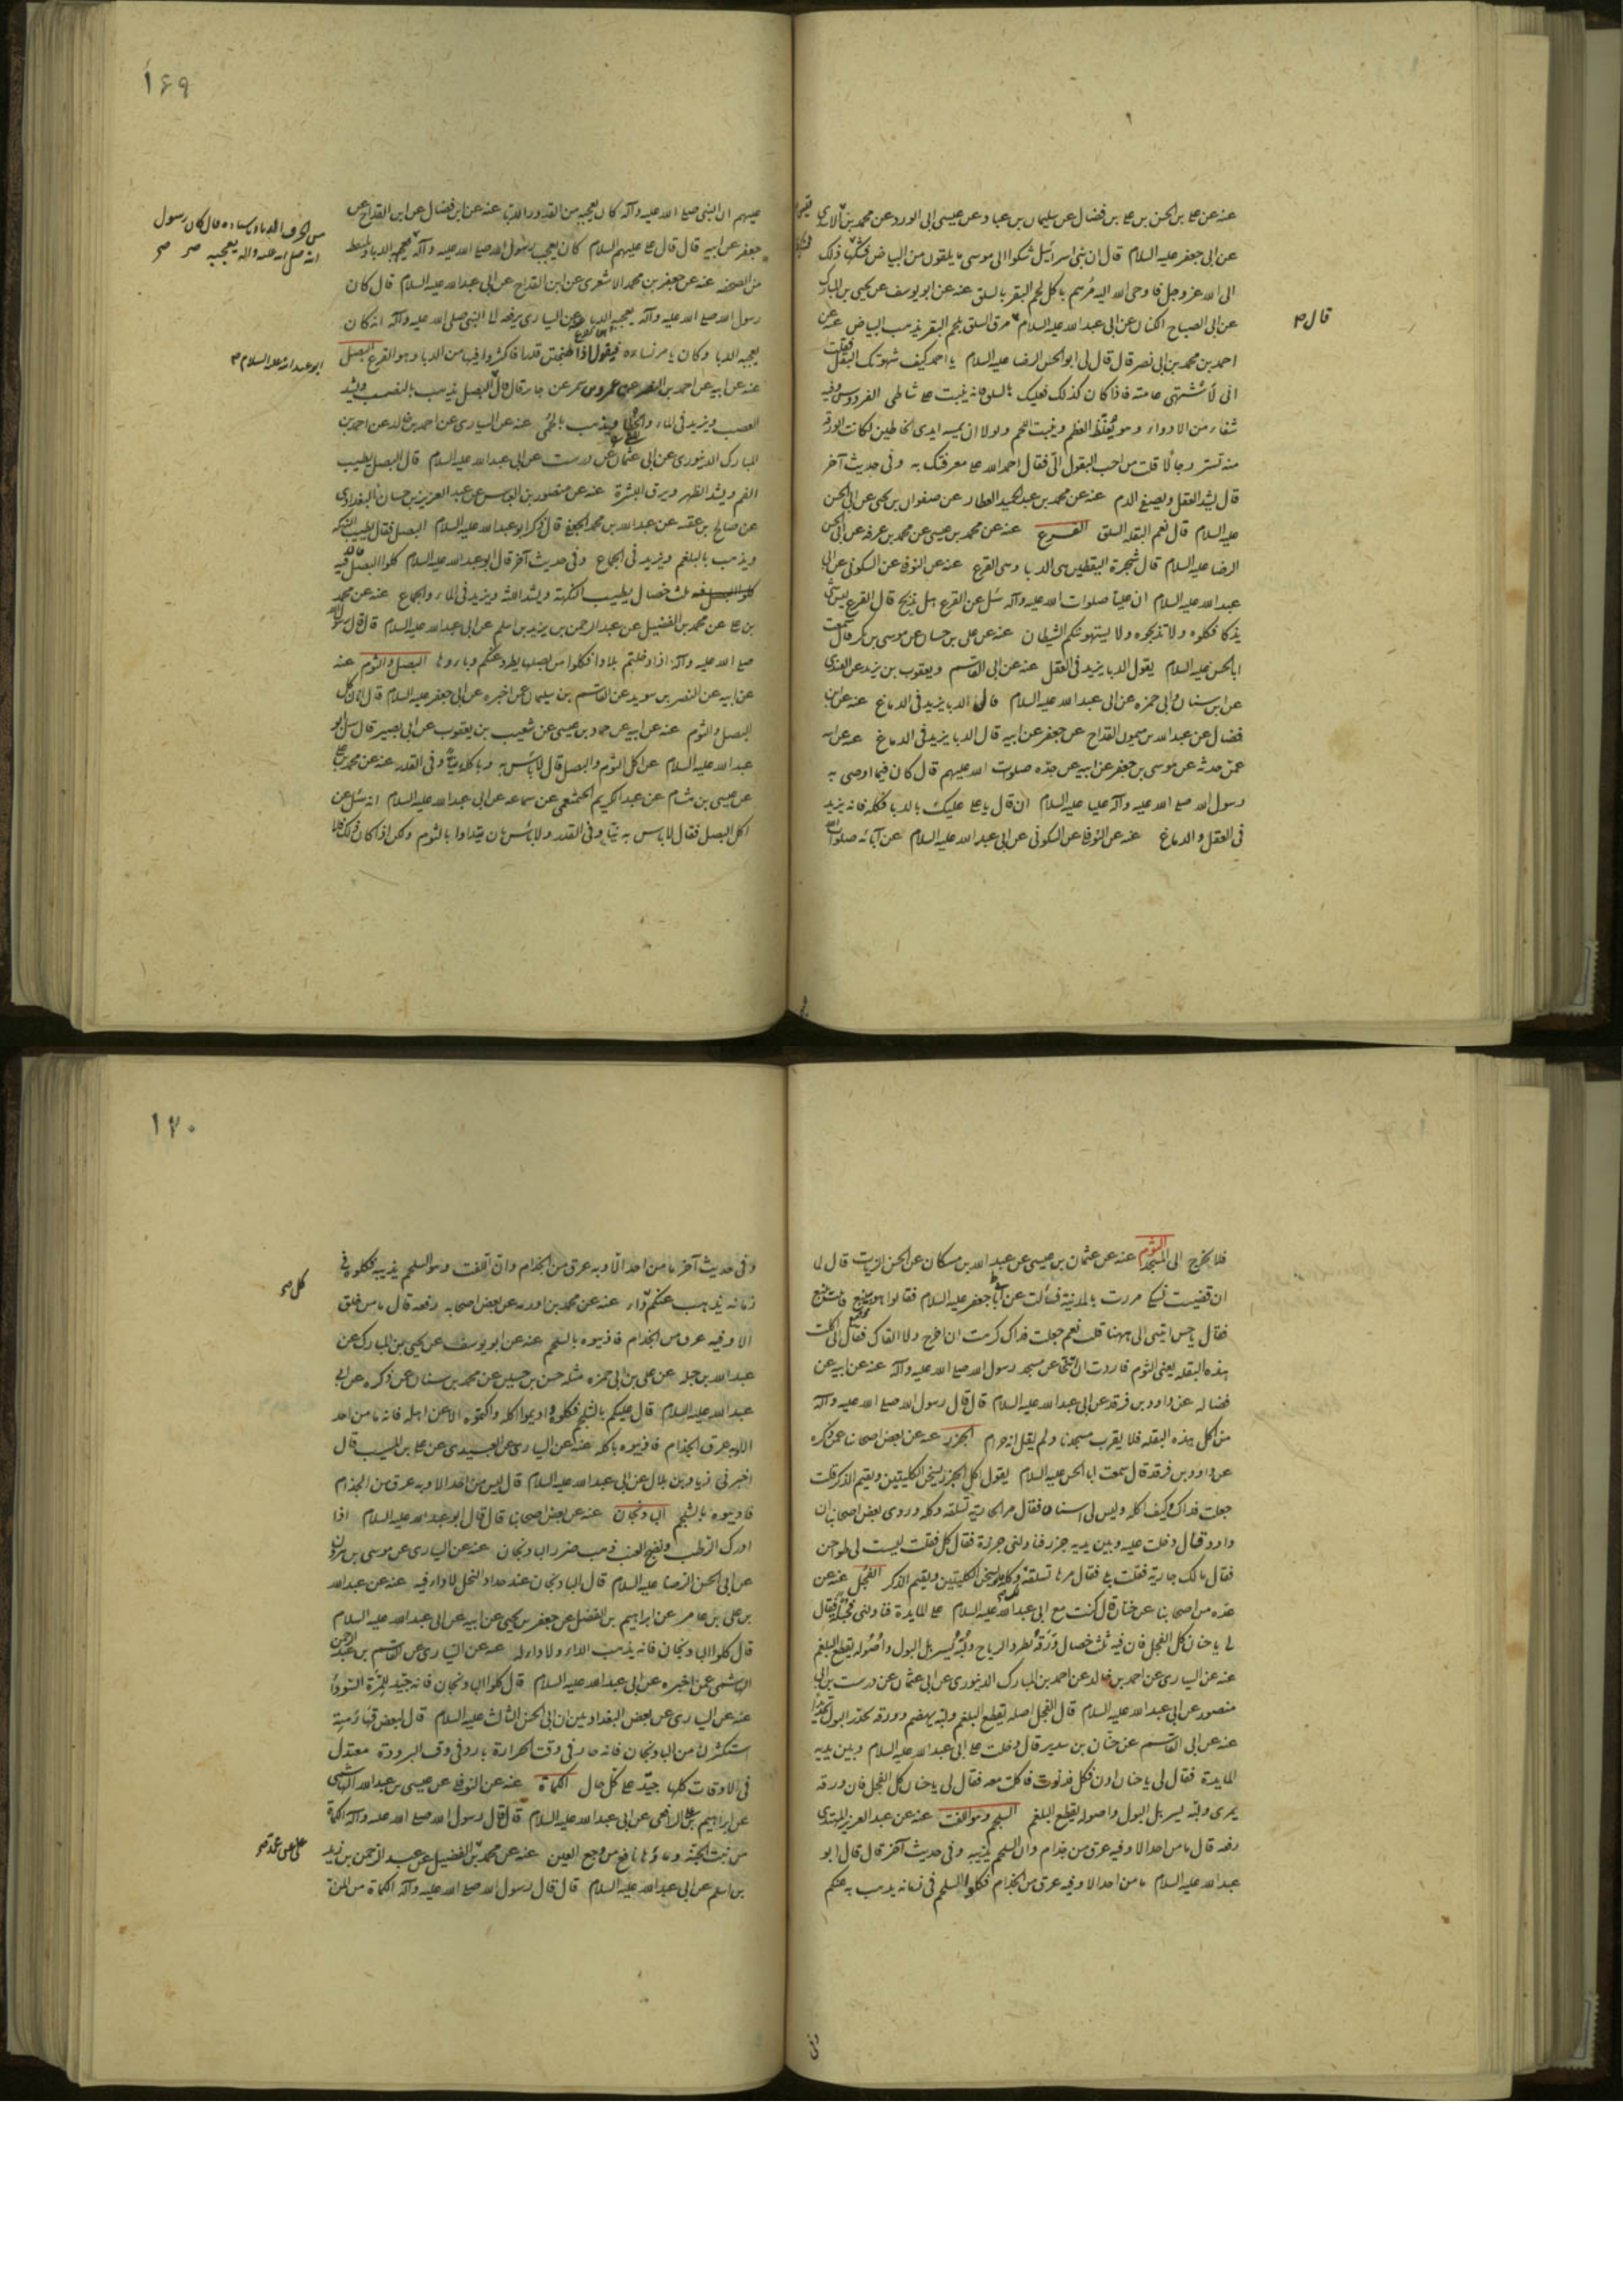 عنه عن علی بن الحسن بن علی بن فضال عن سلیمان بن عباد عن عیسی ابی الورد عن محمد بن
عن ابی جعفر علیه السلام قال ان بنی اسرائیل شکوا الی موسی ما یلقون من البیاض فشکا ذلک
الی الله عز وجل فاوحی الله الیه مرهم باکل لحم البقر بالسلق عنه عن ابو یوسف عن یحیی بن المبارک
عن ابی الصباح الکنانی عن ابی عبد الله علیه السلام مرق السلق بلحم البقر یذهب البیاض عنه عن
قال
احمد بن محمد بن ابی نصر قال قال لی ابو الحسن الرضا علیه السلام یا احمد کیف شهوتک البقل فقلت
انی لأشتهی عامته فاذا کان کذلک فعلیک بالسلق فانه ینبت علی شاطئ الفردوس وفیه
شفاء من الادواء وهو یغلظ العظم وینبت اللحم ولولا ان یمسه ایدی الخاطئین لکانت الورقة
منه تستر رجالا قلت من احب البقول الی فقال احمد الله علی معرفتک به وفی حدیث آخر
قال یشد العقل ویصفی الدم عنه عن محمد بن عبد الحمید العطار عن صفوان بن یحیی عن ابی الحسن
علیه السلام قال نعم البقلة السلق القرع عنه عن محمد بن عیسی عن محمد بن عرفه عن ابی الحسن
الرضا علیه السلام قال شجرة الیقطین هی الدبا وهی القرع عنه عن النوفلی عن السکونی عن ابی
عبد الله علیه السلام ان علیا صلوات الله علیه وآله سئل عن القرع هل یذبح قال القرع لیس شئ
یذکا فکلوه ولا تذبحوه ولا یستهوینکم الشیطان عنه عن علی بن حسان عن موسی بن بکر قال سمعت
ابا الحسن علیه السلام یقول الدبا یزید فی العقل عنه عن ابی القاسم ویعقوب بن یزید عن القندی
عن ابن سنان وابی حمزه عن ابی عبد الله علیه السلام قال الدبا یزید فی الدماغ عنه عن ابن
فضال عن عبد الله بن میمون القداح عن جعفر عن ابیه قال الدبا یزید فی الدماغ عنه عن ابیه
عمن حدثه عن موسی بن جعفر عن ابیه عن جده صلوات الله علیهم قال کان فیما اوصی به
رسول الله صلی الله علیه وآله علیا علیه السلام ان قال یا علی علیک بالدبا فکله فانه یزید
فی العقل والدماغ عنه عن النوفلی عن السکونی عن ابی عبد الله علیه السلام عن آبائه صلوات الله
۱۶۹
علیهم ان النبی صلی الله علیه وآله کان یعجبه من القدور الدبا عنه عن ابن فضال عن ابن القداح عن
جعفر عن ابیه قال قال علی علیهم السلام کان یعجب رسول الله صلی الله علیه وآله الدبا ویلتقط
من الصحفه عنه عن جعفر بن محمد الاشعری عن ابن القداح عن ابی عبد الله علیه السلام قال کان
رسول الله صلی الله علیه وآله یعجبه الدبا عنه عن السیاری یرفعه الی النبی صلی الله علیه وآله انه کان
یعجبه الدبا وکان یامر نساءه فیقول اذا طبختن قدرا فاکثروا فیها من الدبا وهو القرع البصل
ابو عبد الله علیه السلام
عنه عن ابیه عن احمد بن النضر عن عمرو بن شمر عن جابر قال قال البصل یذهب بالنصب ویشد
العصب ویزید فی الماء والخطا ویذهب بالحمی عنه عن السیاری عن احمد بن خالد عن احمد بن
المبارک الدینوری عن ابی عثمان عن درست عن ابی عبد الله علیه السلام قال البصل یطیب
الفم ویشد الظهر ویرق البشرة عنه عن منصور بن العباس عن عبد العزیز بن حسان البغدادی
عن صالح بن عقبه عن عبد الله بن محمد الجعفی قال ذکر ابو عبد الله علیه السلام البصل فقال یطیب النکهه
ویذهب بالبلغم ویزید فی الجماع وفی حدیث آخر قال ابو عبد الله علیه السلام کلوا البصل فان فیه
ثلث خصال یطیب النکهة ویشد اللثة ویزید فی الماء والجماع عنه عن محمد
بن علی عن محمد بن الفضیل عن عبد الرحمن بن زید بن اسلم عن ابی عبد الله علیه السلام قال قال رسول الله
صلی الله علیه وآله اذا دخلتم بلادا فکلوا من بصلها یطرد عنکم وباءها البصل والثوم عنه
عن ابیه عن النضر بن سوید عن القاسم بن سلیمان عمن اخبره عن ابی جعفر علیه السلام قال انا لناکل
البصل والثوم عنه عن ابیه عن حماد بن عیسی عن شعیب بن یعقوب عن ابی بصیر قال سئل ابو
عبد الله علیه السلام عن اکل الثوم والبصل قال لا بأس به نیا وفی القدر عنه عن محمد بن علی
عن عیسی بن هشام عن عبد الکریم الخثعمی عن سماعه عن ابی عبد الله علیه السلام انه سئل عن
اکل البصل فقال لا باس به نیا وفی القدر ولا بأس بان یتداوا بالثوم ولکن اذا کان ذلک
فلا یخرج الی المسجد الثوم عنه عن عثمان بن عیسی عن عبد الله بن مسکان عن الحسن الزیات قال لما
ان قضیت نسکی مررت بالمدینة فسألت عن ابی جعفر علیه السلام فقالوا هو بینبع فاتیت ینبع
فقال یا حسن اتیتنی الی ههنا قلت نعم جعلت فداک کرهت ان اخرج ولا القاک فقال انی اکلت
هذه البقله یعنی الثوم فاردت ان اتنحی عن مسجد رسول الله صلی الله علیه وآله عنه عن ابیه عن
فضاله عن داود بن فرقد عن ابی عبد الله علیه السلام قال قال رسول الله صلی الله علیه وآله
من اکل هذه البقله فلا یقرب مسجدنا ولم یقل انه حرام الجزر عنه عن بعض اصحابنا عمن ذکره
عن داود بن فرقد قال سمعت ابا الحسن علیه السلام یقول اکل الجزر یسخن الکلیتین ویقیم الذکر قلت
جعلت فداک وکیف اکله ولیس لی اسنان فقال مر الجاریة تسلقه وکله وروی بعض اصحابنا ان
داود قال دخلت علیه وبین یدیه جزر فناولنی جزرة فقال کل فقلت لیست لی طواحن
فقال مالک جاریة فقلت بلی فقال مرها تسلقه وکله فانه یسخن الکلیتین ویقیم الذکر الفجل عنه عن
عده من اصحابنا عن حنان قال کنت مع ابی عبد الله علیه السلام علی المایدة فناولنی فجلة فقال
لی یا حنان کل الفجل فان فیه ثلث خصال ورقه یطرد الریاح ولبه یسربل البول واصوله یقطع البلغم
عنه عن السیاری عن احمد بن خالد عن احمد بن المبارک الدینوری عن ابی عثمان عن درست بن ابی
منصور عن ابی عبد الله علیه السلام قال الفجل اصله یقطع البلغم ولبه یهضم وورقه یحدر البول تحدیرا
عنه عن ابی القاسم عن حنان بن سدیر قال دخلت علی ابی عبد الله علیه السلام وبین یدیه
المایدة فقال لی یا حنان ادن فکل فدنوت فاکلت معه فقال لی یا حنان کل الفجل فان ورقه
یمرئ ولبه یسربل البول واصوله یقطع البلغم السلجم وهو اللفت عنه عن عبد العزیز المهتدی
رفعه قال ما من احد الا وفیه عرق من جذام وان السلجم یذیبه وفی حدیث آخر قال قال ابو
عبد الله علیه السلام ما من احد الا وفیه عرق من الجذام فکلوا السلجم فی زمانه یذهب به عنکم
۱۷۰
وفی حدیث آخر ما من احد الا وبه عرق من الجذام وان اللفت وهو السلجم یذیبه فکلوه فی
زمانه یذهب عنکم داء عنه عن محمد بن اورمه عن بعض اصحابه رفعه قال ما من خلق
الا وفیه عرق من الجذام فاذیبوه بالسلجم عنه عن ابو یوسف عن یحیی بن المبارک عن
عبد الله بن جبله عن علی بن ابی حمزه مثله حسن بن حسین عن محمد بن سنان عمن ذکره عن ابی
عبد الله علیه السلام قال علیکم بالسلجم فکلوه وادیموا اکله واکتموه الا عن اهله فانه ما من احد
الا وبه عرق الجذام فاذیبوه باکله عنه عن السیاری عن العبیدی عن علی بن المسیب قال
اخبرنی زیاد بن بلال عن ابی عبد الله علیه السلام قال لیس من احد الا وبه عرق من الجذام
فاذیبوه بالسلجم الباذنجان عنه عن بعض اصحابنا قال قال ابو عبد الله علیه السلام اذا
ادرک الرطب ونضج العنب ذهب ضرر الباذنجان عنه عن السیاری عن موسی بن هارون
عن ابی الحسن الرضا علیه السلام قال الباذنجان عند جداد النخل لا داء فیه عنه عن عبد الله
بن علی بن عامر عن ابراهیم بن الفضل عن جعفر بن یحیی عن ابیه عن ابی عبد الله علیه السلام
قال کلوا الباذنجان فانه یذهب الداء ولا داء له عنه عن السیاری عن القاسم بن عبد الرحمن
الهاشمی عمن اخبره عن ابی عبد الله علیه السلام قال کلوا الباذنجان فانه جید للمرة السوداء
عنه عن السیاری عن بعض البغدادیین ان ابی الحسن الثالث علیه السلام قال لبعض قهارمته
استکثر لنا من الباذنجان فانه حار فی وقت الحرارة بارد فی وقت البرودة معتدل
فی الاوقات کلها جید علی کل حال الکماة عنه عن النوفلی عن عیسی بن عبد الله الهاشمی
عن ابراهیم بن علی الرافعی عن ابی عبد الله علیه السلام قال قال رسول الله صلی الله علیه وآله الکماة
من نبت الجنة وماؤها نافع من وجع العین عنه عن محمد بن الفضیل عن عبد الرحمن بن زید
بن اسلم عن ابی عبد الله علیه السلام قال قال رسول الله صلی الله علیه وآله الکماة من المن